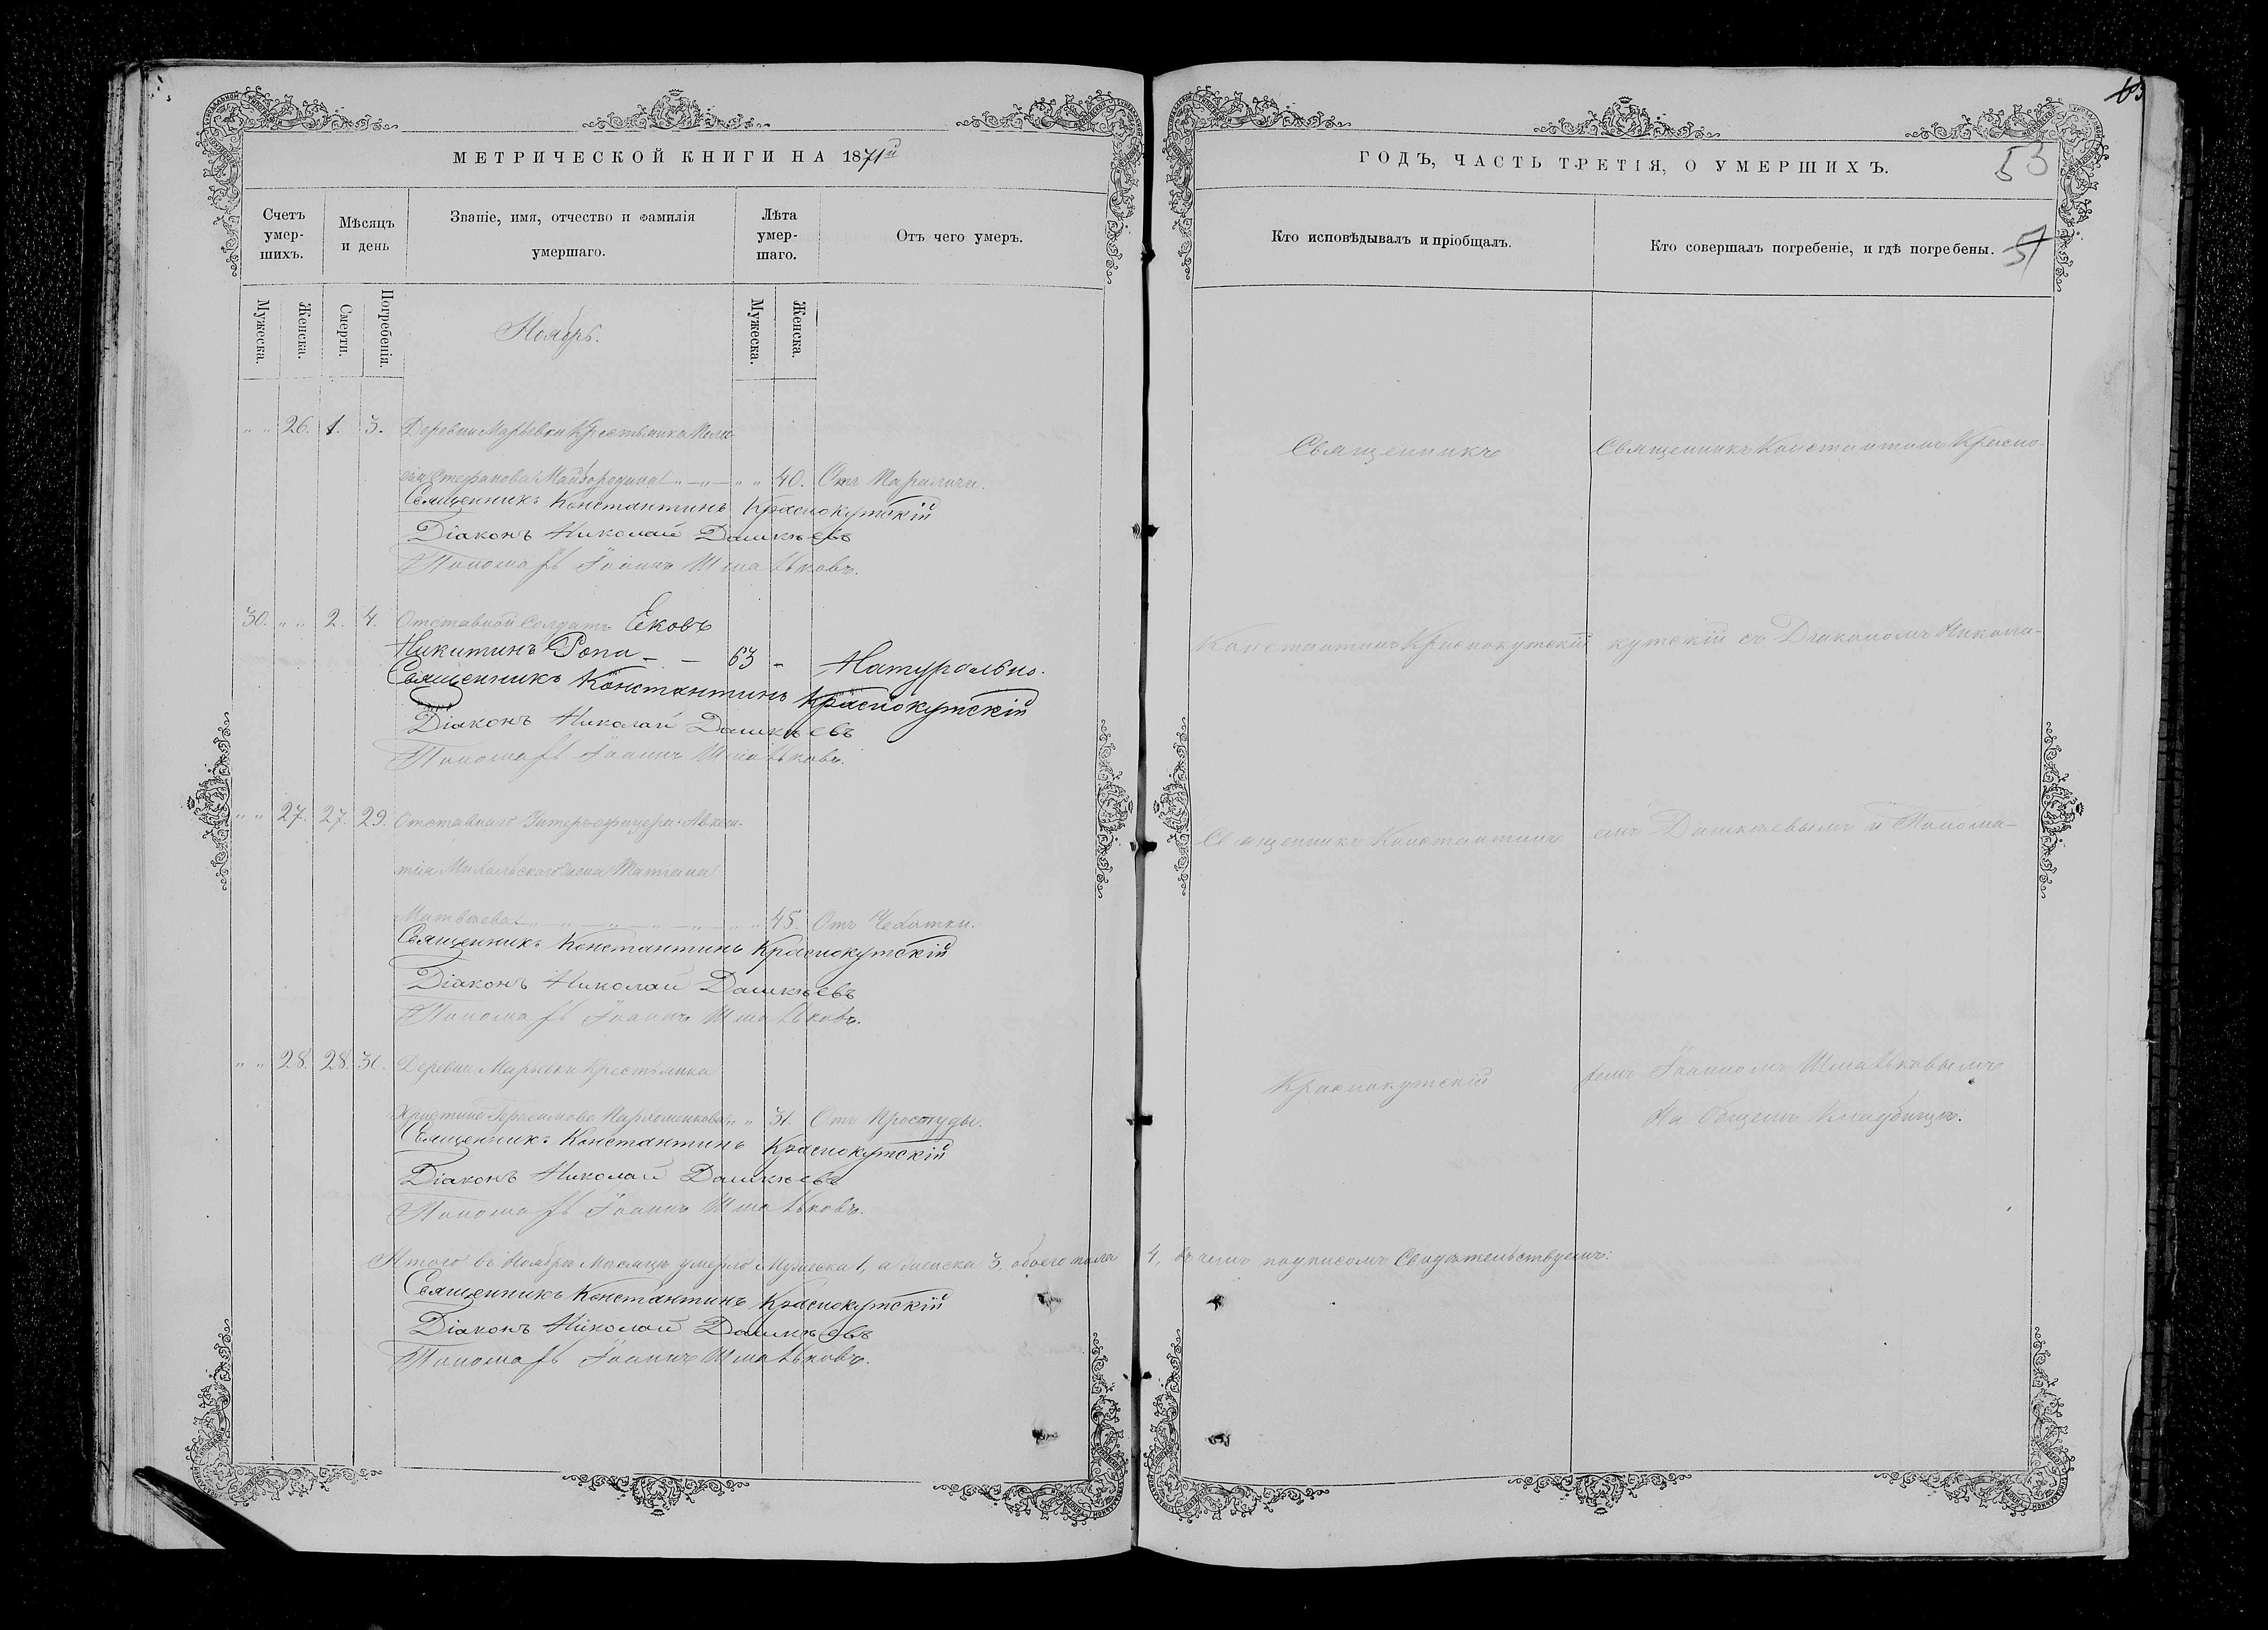 МЕТРИЧЕСКОЙ КНИГИ НА 1871й
Счетъ умер-шихъ.
Мѣсяцъ и день
Званіе, имя, отчество и фамилія умершаго.
Лѣта умер-шаго.
Отъ чего умеръ.
Мужеска.
Женска.
Смерти.
Погребенія.
Мужеска.
Женска.
Ноябрь.
" " 26. 1. 3. Деревни Марьевки Крестьянка Пела-
гія Стефанова Майбородина " " 40. Отъ Паралича.
Священникъ Константинъ Краснокутскій
Діаконъ Николай Дашкѣевъ
Пономарь Іоаннъ Шматьковъ.
30. " " 2. 4. Отставной Солдатъ Ековъ
Никитинъ Ропа - - 63 - Натурально.
Священникъ Константинъ Краснокутскій
Діаконъ Николай Дашкѣевъ
Пономарь Іоаннъ Шматьковъ.
" " 27. 27. 29. Отставнаго Унтеръ-офицера
жена Татіана
Матвѣева " " 45. Отъ Чехотки.
Священникъ Константинъ Краснокутскій
Діаконъ Николай Дашкѣевъ
Пономарь Іоаннъ Шматьковъ.
" " 28. 28. 30. Деревни Марьевки Крестьянка
Христина Герасимова Пархоменкова " " 31. Отъ Простуды.
Священникъ Константинъ Краснокутскій
Діаконъ Николай Дашкѣевъ
Пономарь Іоаннъ Шматьковъ.
Итого въ Ноябрѣ Мѣсяцѣ умерло Мужеска 1, а женска 3, обоего пола 4, въ чемъ подписомъ Свидѣтельствуемъ:
Священникъ Константинъ Краснокутскій
Діаконъ Николай Дашкѣевъ
Пономарь Іоаннъ Шматьковъ.
ГОДЪ, ЧАСТЬ ТРЕТІЯ, О УМЕРШИХЪ.
53
Кто исповѣдывалъ и пріобщалъ.
Кто совершалъ погребеніе, и гдѣ погребены.
Священникъ
Константинъ Краснокутскій
Священникъ Константинъ
Краснокутскій
Священникъ Константинъ Красно-
кутскій съ Діакономъ Никола-
емъ Дашкѣевымъ и Понома-
ремъ Іоанномъ Шматьковымъ
На Общемъ Кладбищѣ.